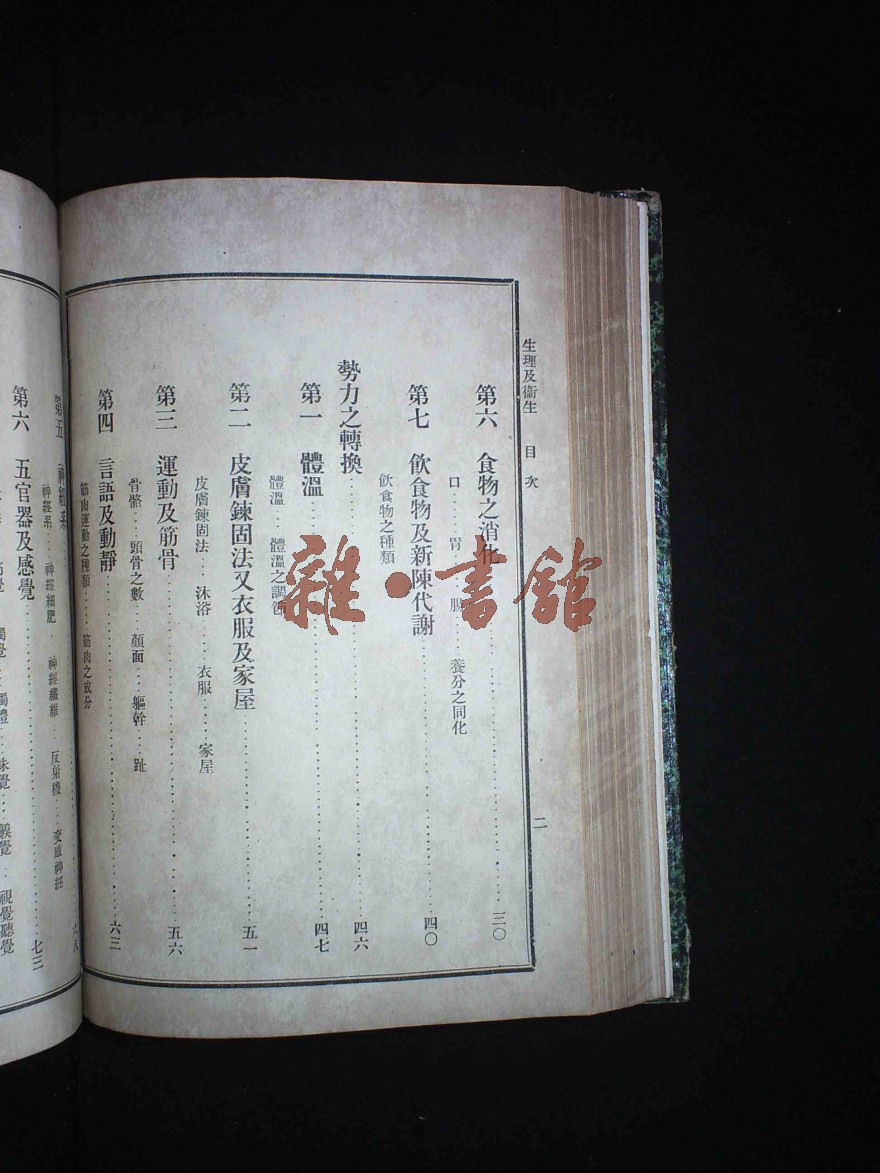 生理及衞生 目次 二
第六 食物之消化……三〇
口……胃……腸……養分之同化
第七 飲食物及新陳代謝……四〇
飲食物之種類
勢力之轉換……四六
第一 體溫……四七
體溫…體溫之調節
第二 皮膚鍊固法又衣服及家屋……五一
皮膚鍊固法…沐浴……衣服……家屋
第三 運動及筋骨……五六
骨骼…頭骨之數…顏面…軀幹…趾
第四 言語及動靜……六三
筋肉運動之種類……筋肉之成分
第五 神經系
神經系……神經細肥 神經纖維……反射機……交感神經
第六 五官器及感覺……七三
觸覺…觸體……味覺……齅覺…視覺聽覺
雜·書館